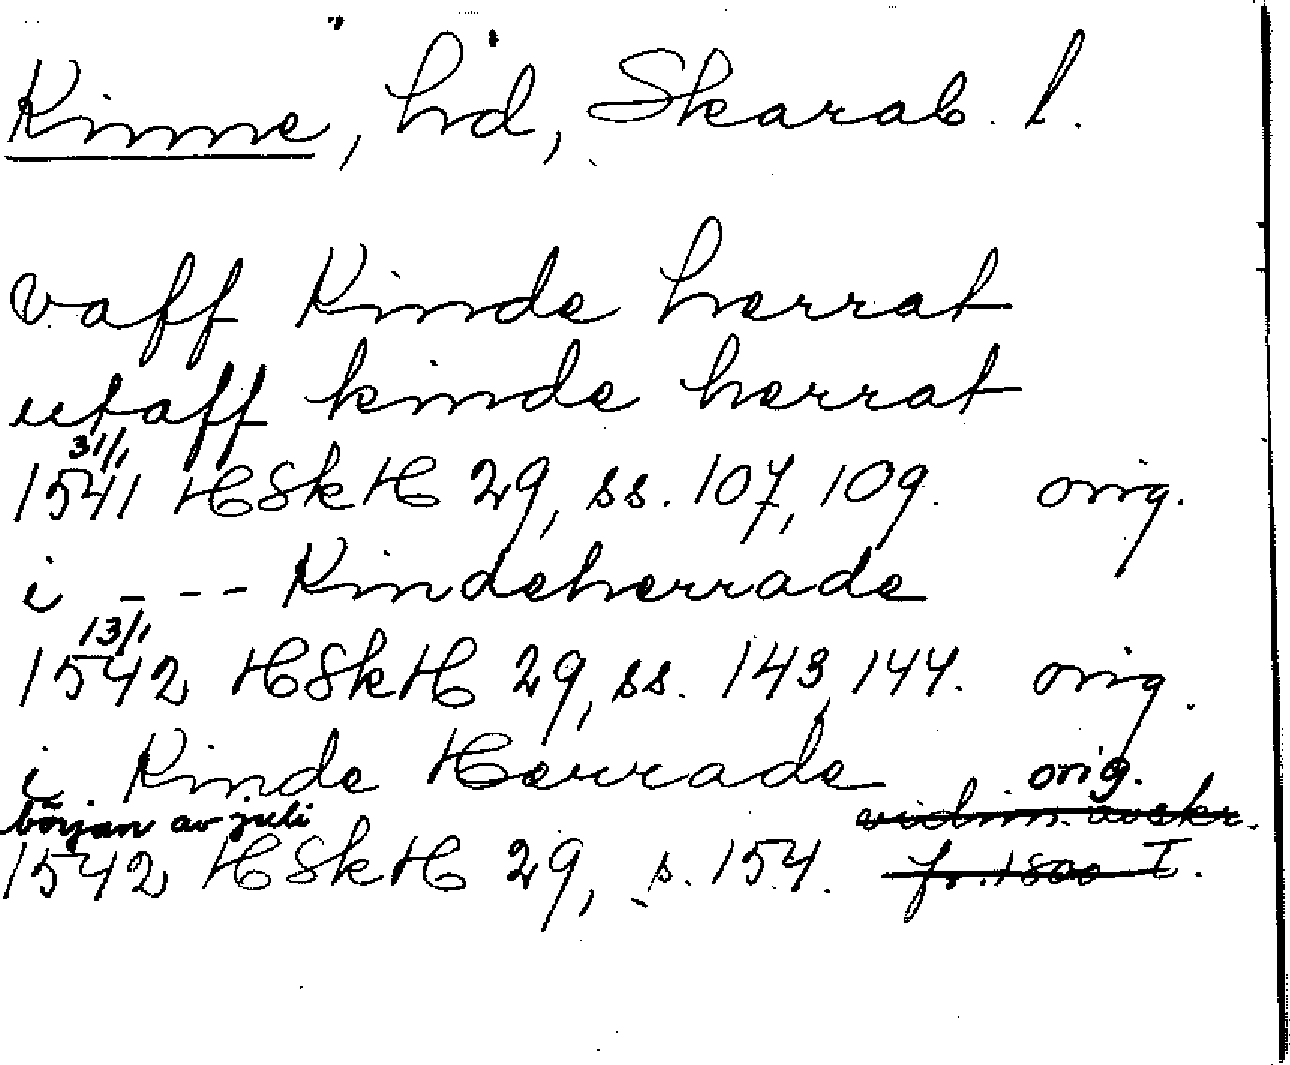 Kinne, hd, Skarab. l.
vaff Kinde herrat
utaff kinde herrat
31/1
1541 HSkH 29, ss. 107, 109. orig.
i --- Kindeherrade
13/1
1542 HSkH 29, ss. 143, 144. orig.
i Kinde Herrade orig.
början av juli vidim. avskr.
1542 HSkH 29, s. 154. fr. 1800 T.